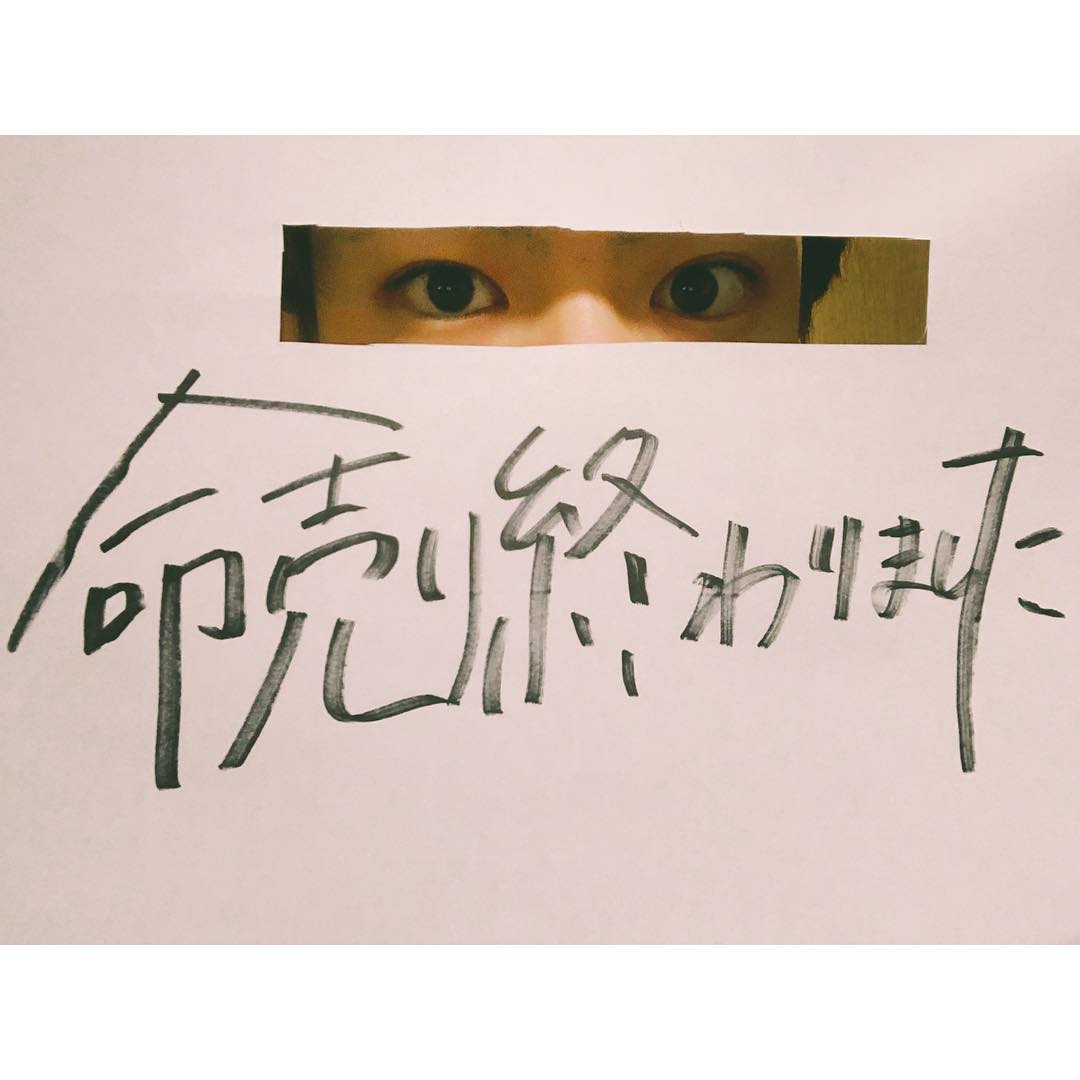 命売り終わりました